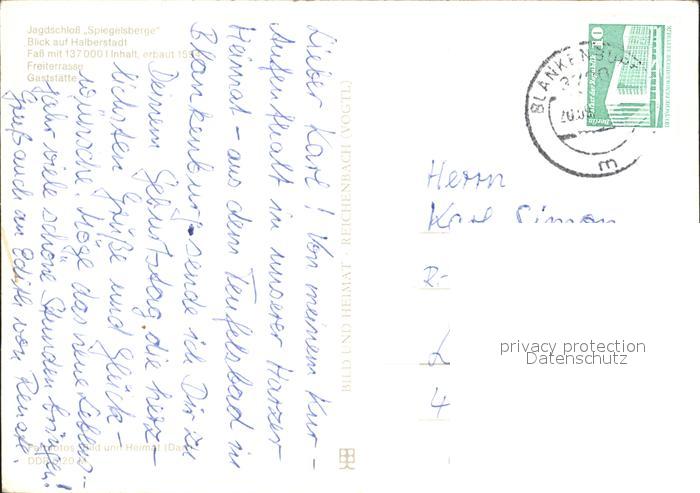 Jagdschloß „Spiegelsberge"
Blick auf Halberstadt
Faß mit 137000 l Inhalt, erbaut 159
Freiterrasse
Gaststätte
Lieber Karl! Von meinem Kur-
Aufenthalt in unserer Harzer
Heimat - aus dem Teufelsbad in
Blankenburg, sende ich Dir zu
Deinem Geburtstag die herz-
lichsten Grüße und Glück-
wünsche. Möge das neue Lebens-
jahr viele schöne Stunden bringen!
Gruß auch an Edith von Renate.
BILD UND HEIMAT · REICHENBACH (VOGTL)
Bild und Heimat
BLANKENBURG
E
10
Berlin
DEUTSCHE DEMOKRATISCHE REPUBLIK
Herrn
Karl Simon
4
privacy protection
Datenschutz